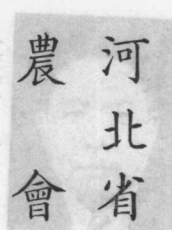 河北省
農會